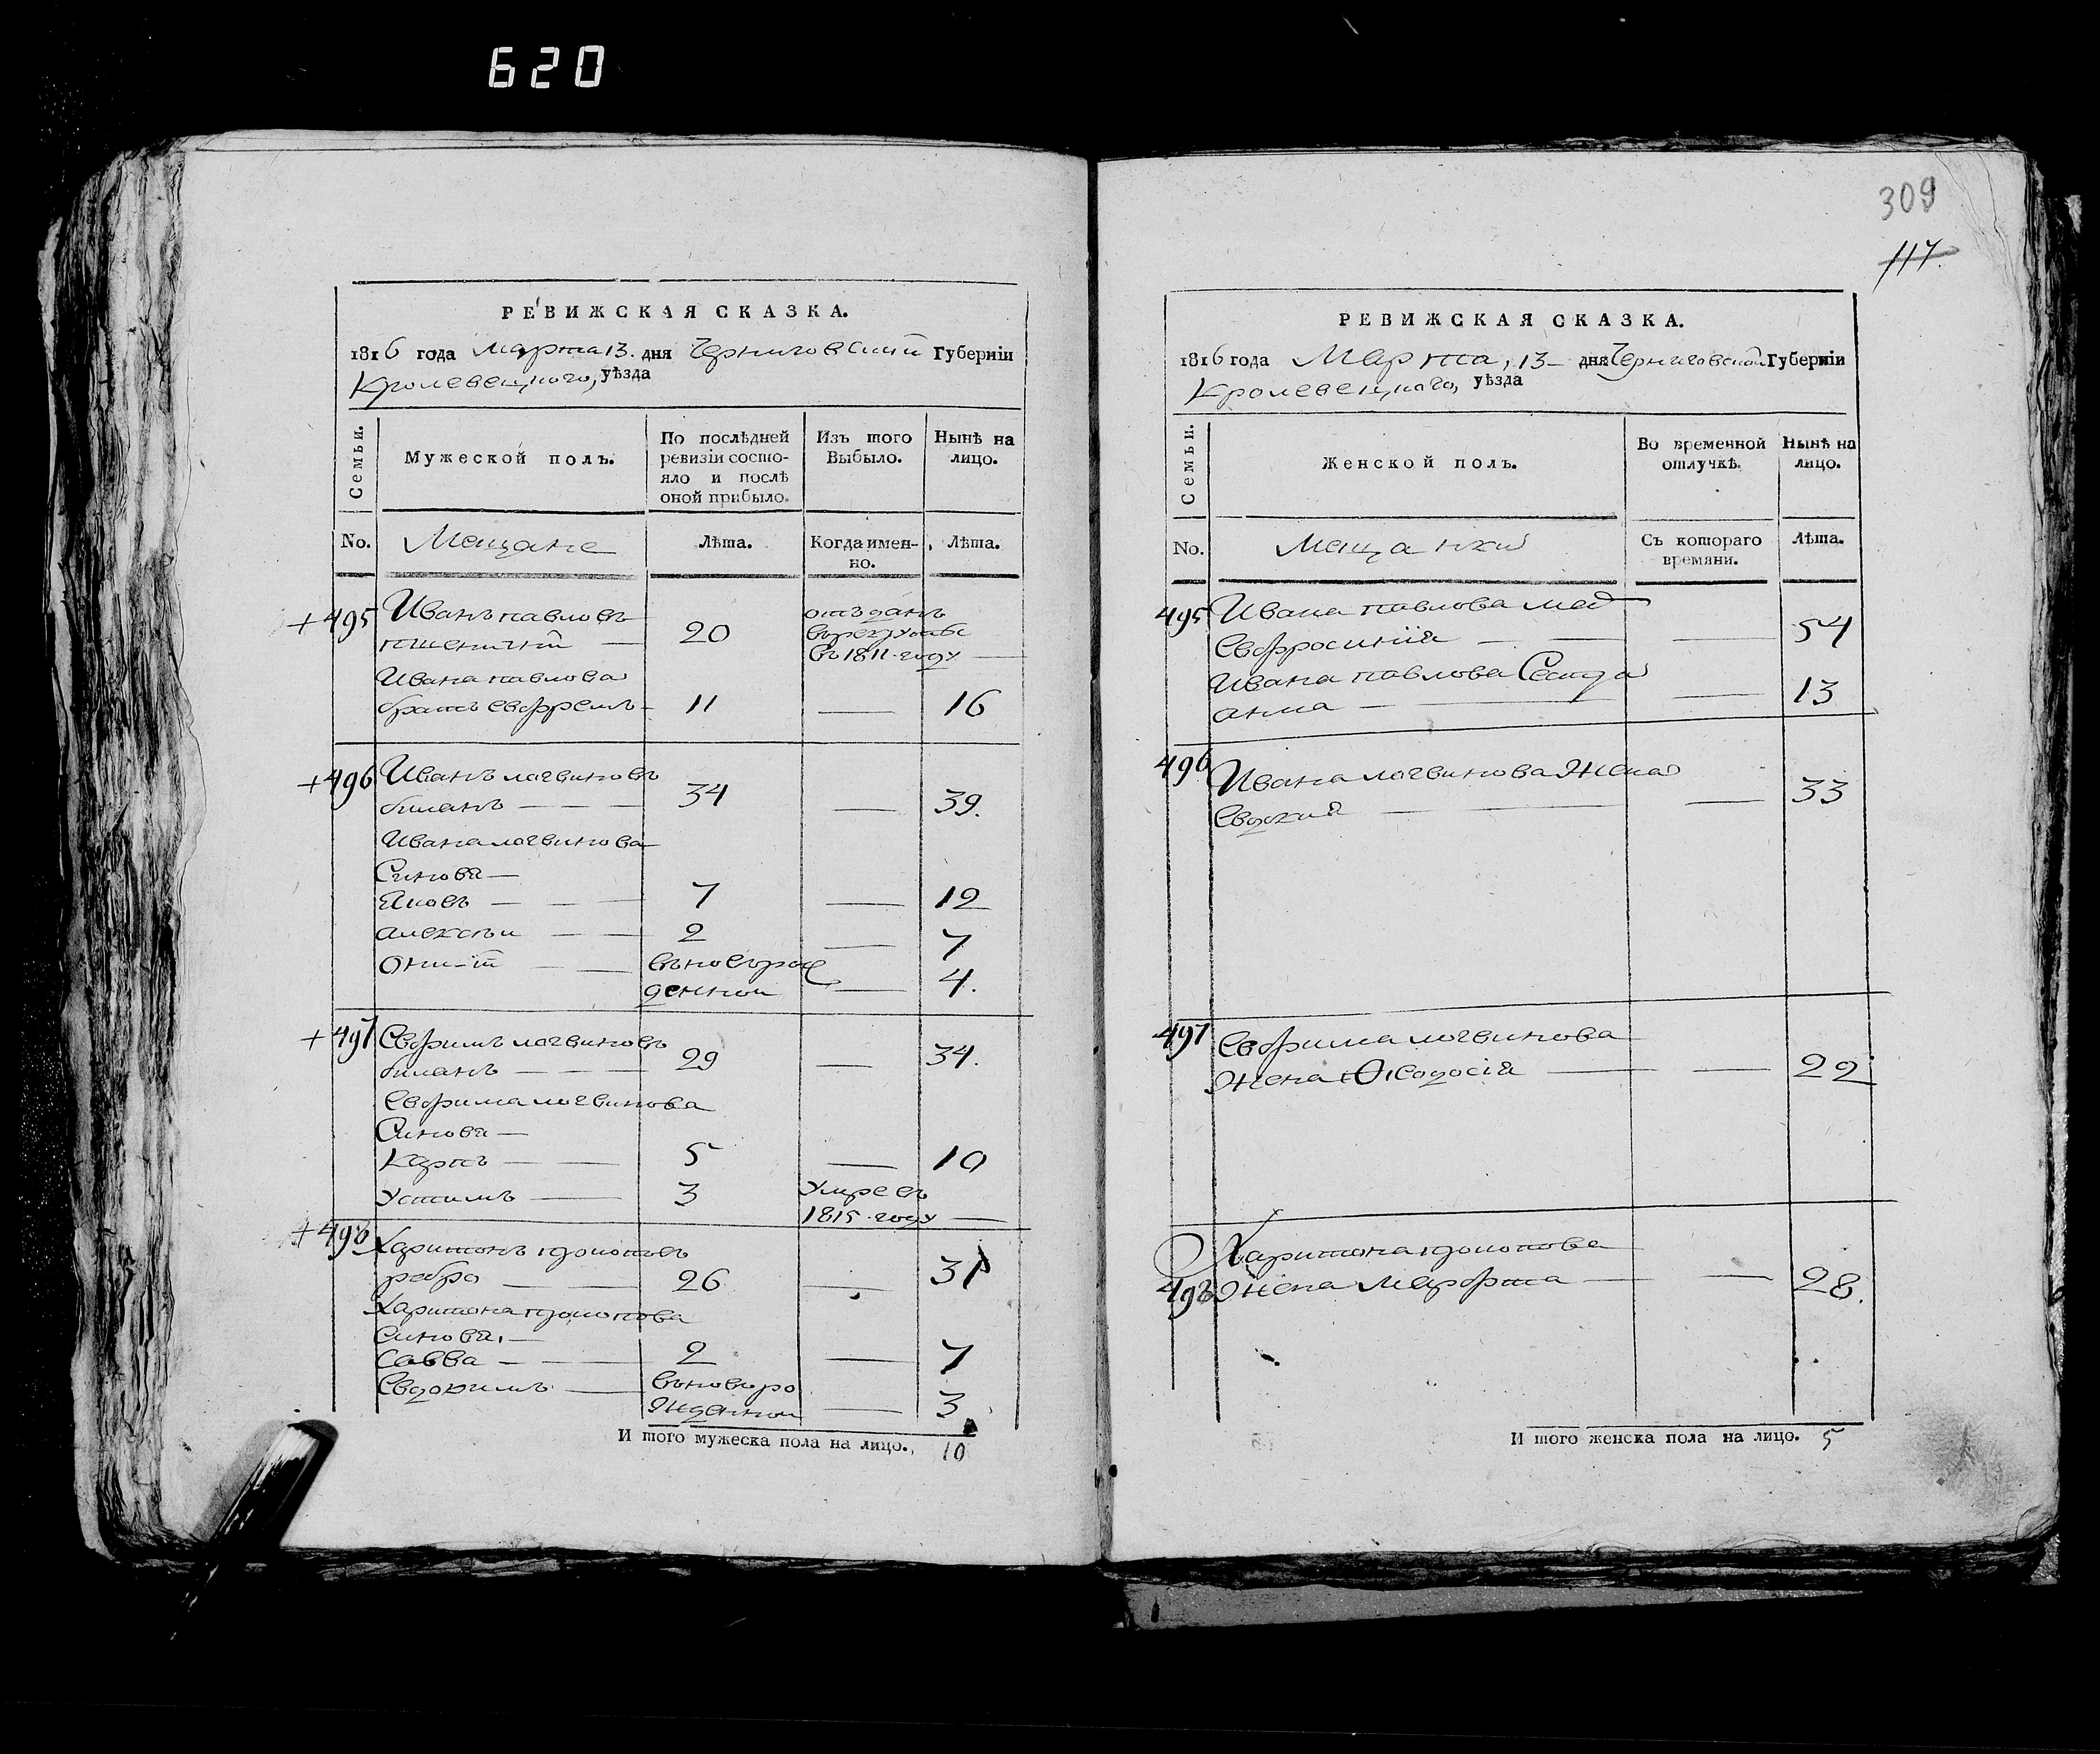 620
РЕВИЖСКАЯ СКАЗКА.
1816 года Марта 13. дня Черниговский Губернiи
Кролевецкого, уѣзда
Семьи.
Мужеской полъ.
По послѣдней
ревизiи состо-
яло и послѣ
оной прибыло.
Изъ того
Выбыло.
Нынѣ на
лицо.
No.
Мещане
Лѣта.
Когда имен-
но.
Лѣта.
+495 Иванъ павловъ
20
отъданъ
въ рекруты
въ 1811 году
Ивана павлова
братъ евфремъ 11 — 16
+496 Иванъ логвиновъ
биланъ — 34 — 39.
Ивана логвинова
Синова —
Яковъ — 7 — 12
алексѣи — 2 — 7
въноворож
денной — 4.
+497 Евфимъ логвиновъ
биланъ — 29 — 34.
Евфима логвинова
Синова —
Карпъ — 5 — 10
Устимъ — 3 Умре въ
1815 году —
+498 Харитонъ прокоповъ
ребро — 26 — 31
Харитона прокопова
Синова, —
Савва — 2 — 7
Евдокимъ — въноворо
жденной — 3
И того мужеска пола на лицо. 10
309
117.
РЕВИЖСКАЯ СКАЗКА.
1816 года Марта, 13 — дня Черниговской Губернiи
Кролевецкого, уѣзда
Семьи.
Женской полъ.
Во временной
отлучкѣ.
Нынѣ на
лицо.
No.
Мещанки
Съ котораго
времяни.
Лѣта.
495 Ивана павлова мат
Евфросинiя — 54
Ивана павлова Сестра
анна — 13
496 Ивана логвинова Жена
Евдокия — 33
497 Евфима логвинова
Жена Феодосiя — 22
Харитона прокопова
498 Жена Марфта — 28.
И того женска пола на лицо. 5